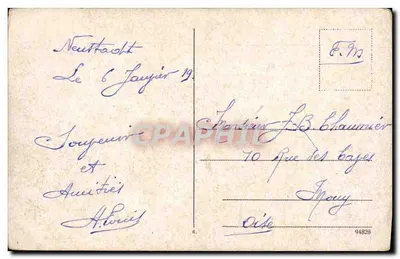 Neustadt
Le 6 Janvier 19.
Souvenir
et
Amitiés
A. Louis
F.M
Monsieur J.B. Chaumier
70 Rue des Cages
Mouy
Oise
94829